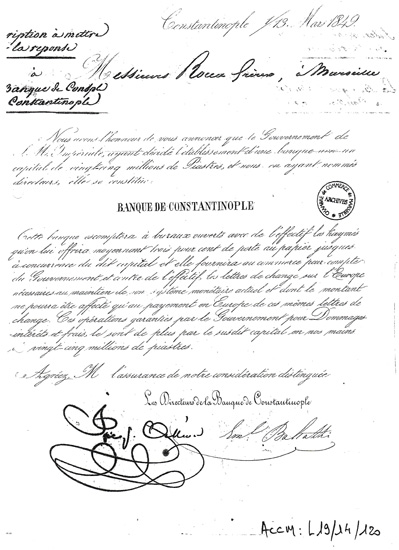 Constantinople 1/13. Mars 1849
ription à mettre
la reponse
à
Banque de Constple
Constantinople
Messieurs Roux frères, à Marseille
Nous avons l'honneur de vous annoncer que le Gouvernement de
S. M. Impériale, ayant décidé l'établissement d'une banque
capital de vingt cinq millions de Piastres, et nous en ayant nommés
directeurs, elle se constitue
BANQUE DE CONSTANTINOPLE
CHAMBRE DE COMMERCE MARSEILLE
ARCHIVES
Cette banque escomptera à bureaux ouverts avec de l'effectif les
qu'on lui offrira moyennant trois pour cent de perte au papier jusques
à concurrence du dit capital et elle fournira au commerce pour compte
du Gouvernement et contre de l'effectif, les lettres de change sur l'Europe
nécessaires au maintien de un système monétaire actuel et dont le montant
ne pourra être affecté qu'au payement en Europe de ces mêmes lettres de
change. Ces opérations garanties par le Gouvernement pour Dommages
intérêts et frais, le sont de plus par le susdit capital en nos mains
vingt-cinq millions de piastres.
Agréez, M l'assurance de notre considération distinguée
Les Directeurs de la Banque de Constantinople
Eml. Baltazzi
ACCM : L 19/14/120